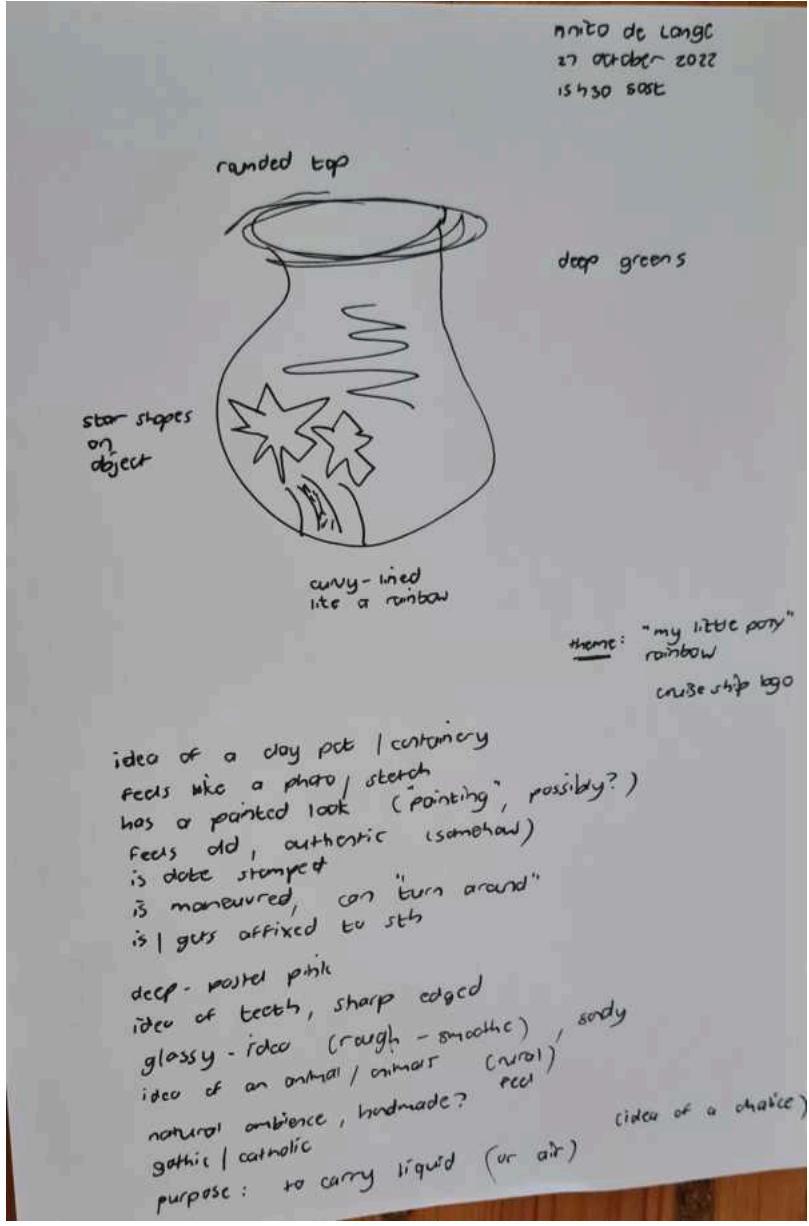 de Lange
27 October 2022
15h30 sast
rounded top
deep greens
star shapes
on
object
curvy-lined
like a rainbow
theme: "my little pony"
rainbow
cruise ship logo
idea of a clay pot /
feels like a photo / sketch
has a painted look ("painting", possibly?)
feels old, authentic (somehow)
is date stamped
is maneuvred, can "turn around"
is / gets affixed to sth
deep-pastel pink
idea of teeth, sharp edged
glassy-idea (rough-smooth), sandy
idea of an animal / animals (rural)
natural ambience, handmade? feel
gothic / catholic
purpose: to carry liquid (or air) (idea of a chalice)